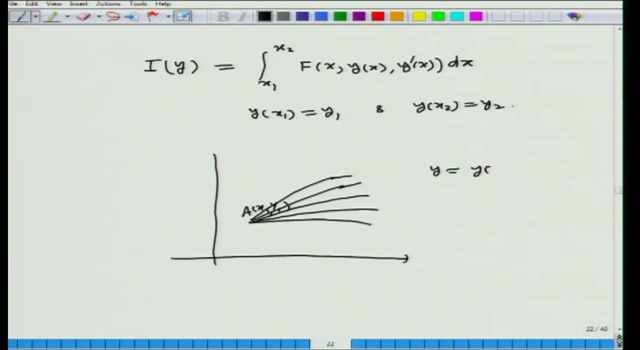 File Edit View Insert Actions Tools Help
I(y) = ∫_{x₁}^{x₂} F(x, y(x), y'(x)) dx
y(x₁) = y₁ & y(x₂) = y₂.
y = y(
A(x₁, y₁)
22 / 40
22